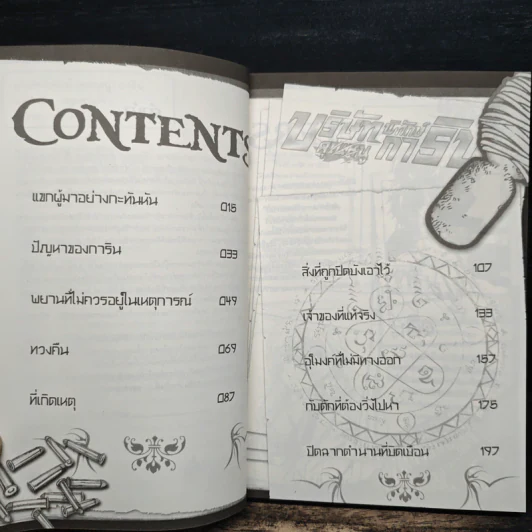 CONTENTS
แขกผู้มาอย่างกะทันหัน 015
ปัญหาของการิน 033
พยานที่ไม่ควรอยู่ในเหตุการณ์ 049
ทวงคืน 069
ที่เกิดเหตุ 087
สิ่งที่ถูกปิดบังเอาไว้ 107
เจ้าของที่แท้จริง 133
อุโมงค์ที่ไม่มีทางออก 157
กับดักที่ต้องวิ่งไปหา 175
ปิดฉากตำนานที่บิดเบือน 197